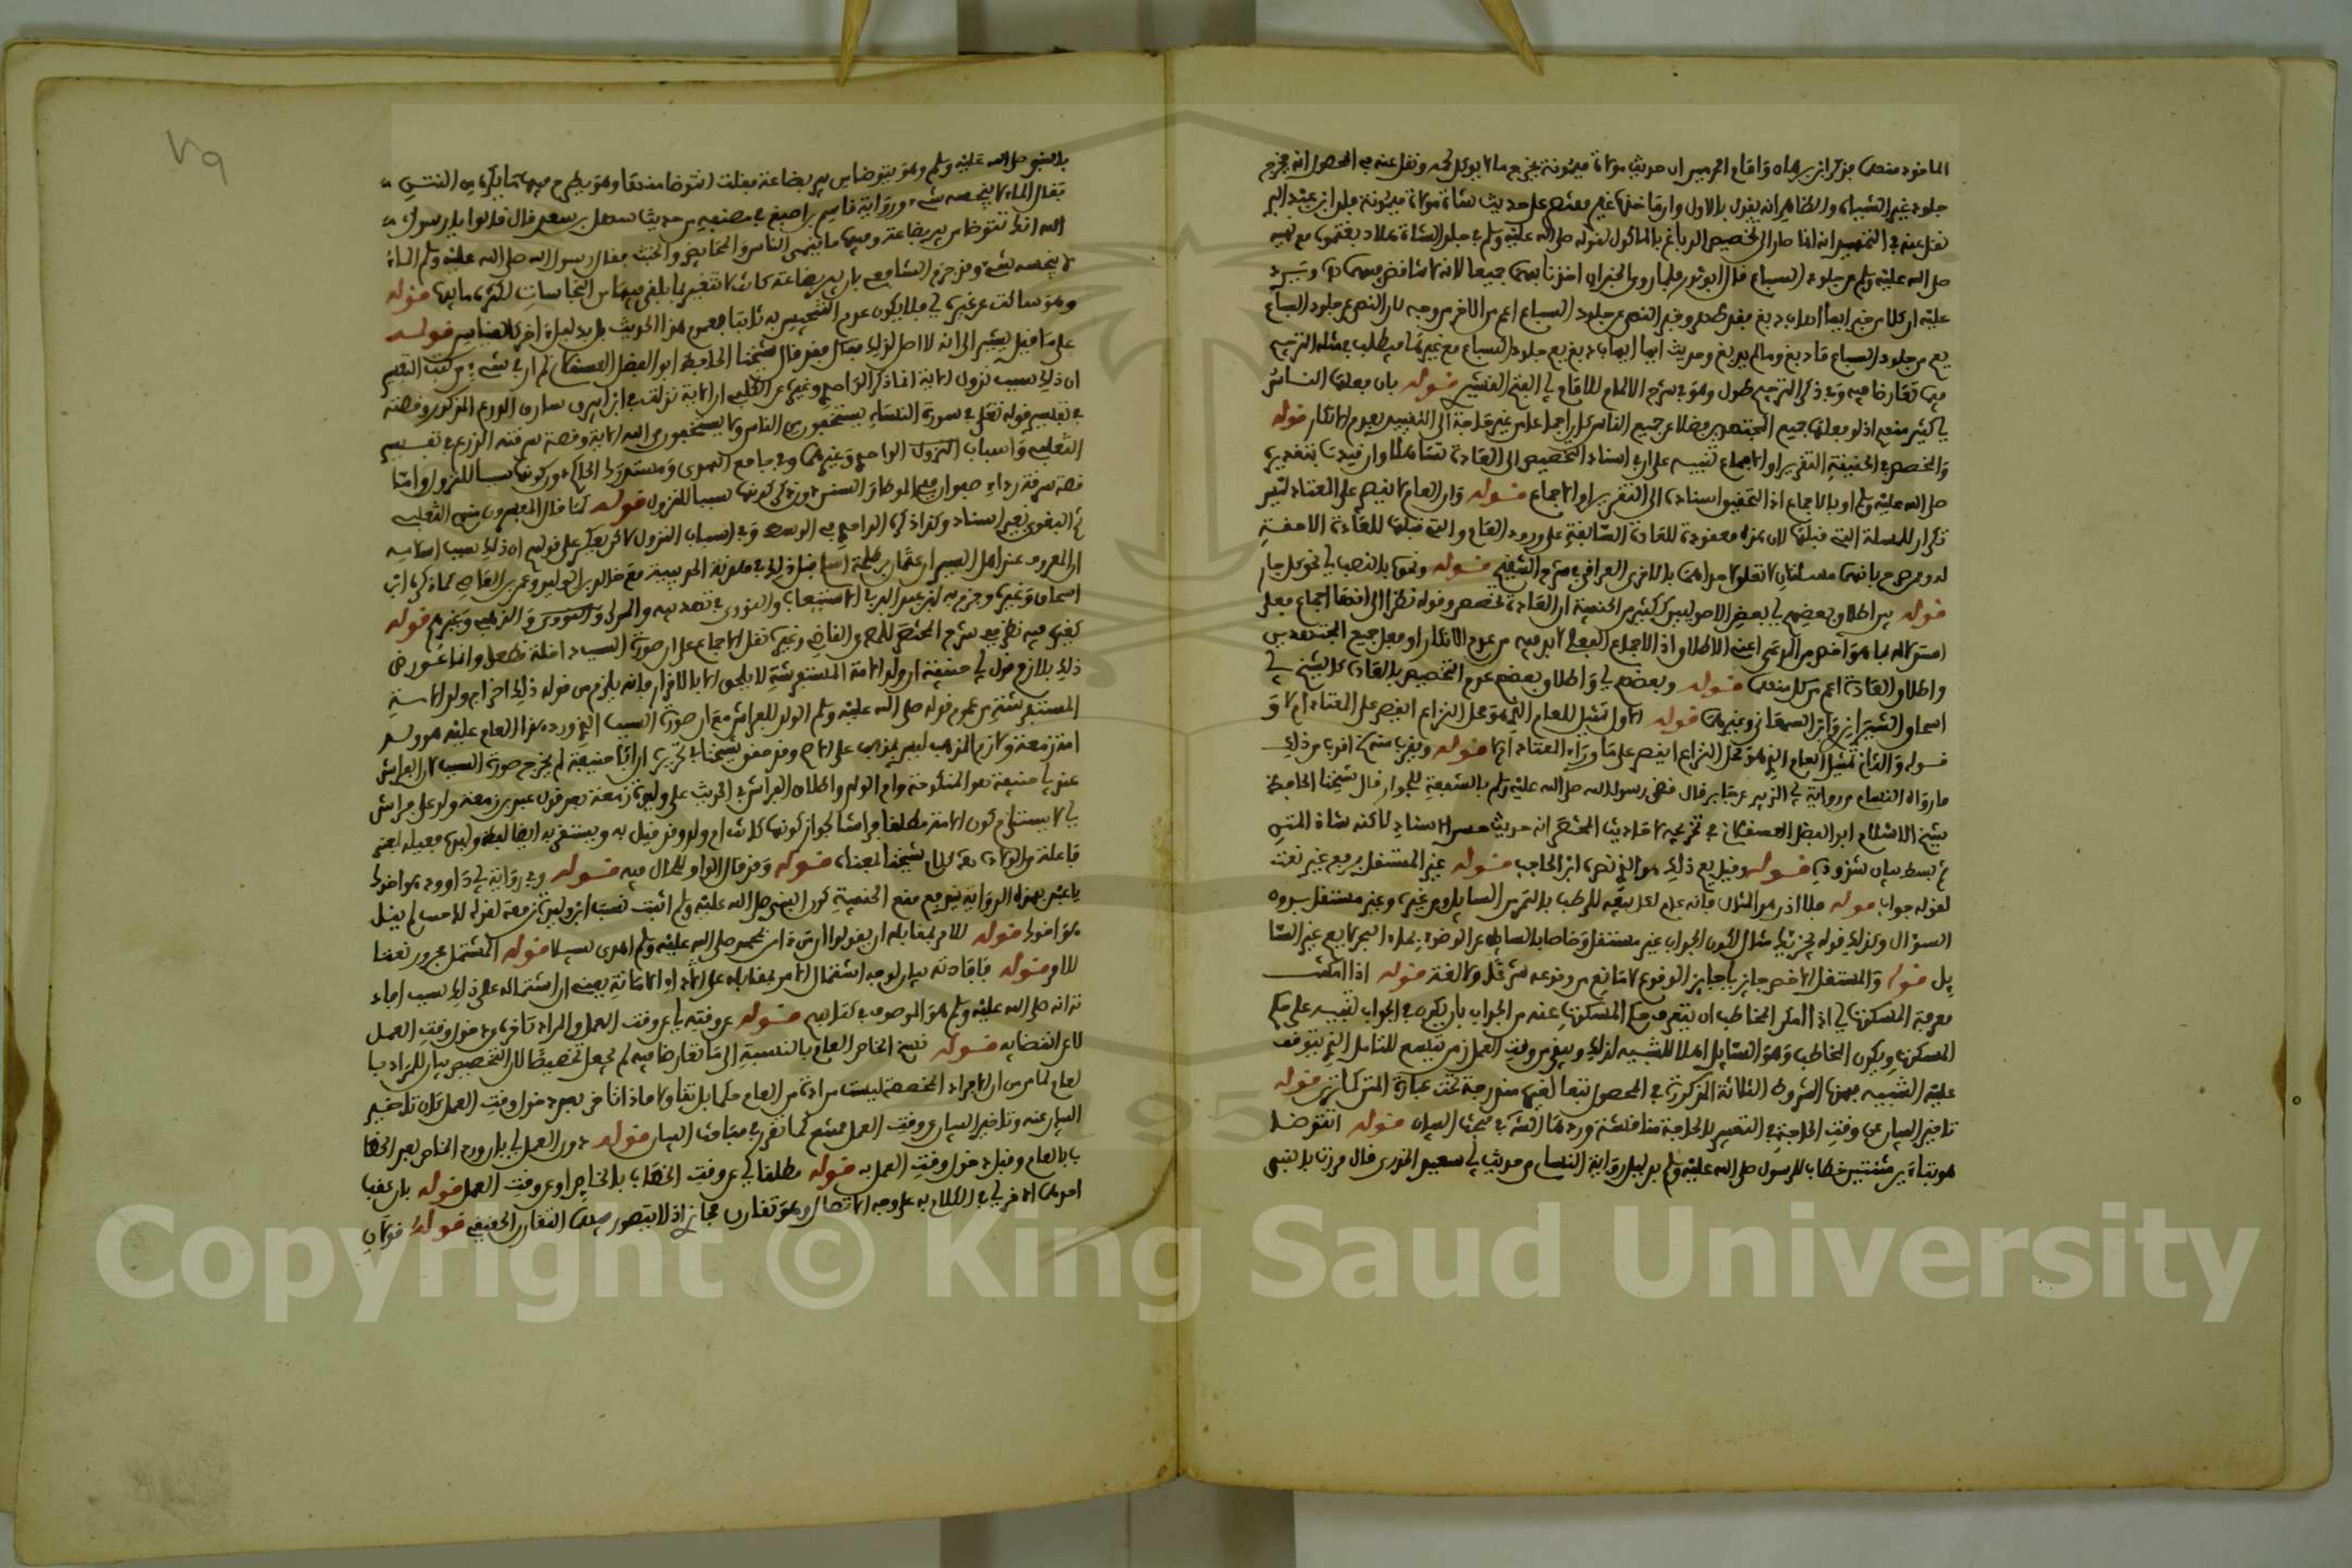 الماخوذ منها فذكر ابن برهان وامام الحرمين ان حديث مولاة ميمونة يخرج ما لا يوكل لحمه ونقل عنه في المحصول انه يخرج
جلود غير الشياه والظاهر انه يقول بالاول وان ما ضها غير مقتصر على حديث شاة مولاة ميمونة فان ابن عبد البر
نقل عنه في التمهيد انه انما صار الى تخصيص الدباغ بالماكول لقوله صلى الله عليه وسلم في جلد الشاة هلا دبغتموه مع نهيه
صلى الله عليه وسلم عن جلود السباع قال ابو ثور فلما روي الخبران اخذنا بهما جميعا لانه لا تناقض فيهما
عليه ان كلا من خبر ايما اهاب دبغ فقد طهر وخبر النهي عن جلود السباع اعم من الاخر من وجه لان النهي عن جلود السباع
يعم من جلود السباع ما دبغ وما لم يدبغ وحديث ايما اهاب دبغ يعم جلود السباع مع غيرها فيطلب في مثله الترجيح
فيما تعارضا فيه وفي ذكر الترجيح طول وهو في شرح الالمام للامام ابي الفتح القشيري قوله بان فعلها الناس
اي كثير منهم اذ لو فعلها جميع المجتهدين فضلا عن جميع الناس كان اجماعا من غير حاجة الى التقييد بعدم الانكار قوله
والمخصص في الحقيقة التقرير او الاجماع تنبيه على ان في اسناد التخصيص الى العادة تساهلا وان قيدت بتقريره
صلى الله عليه وسلم او بالاجماع اذ التحقيق اسناده الى التقرير او الاجماع قوله وان العام لا يقصر على المعتاد ليس
تكرار للمسئلة التي قبلها لان هذه معقودة للعادة السابقة على ورود العام والتي قبلها للعادة
له وصرح بانهما مسئلتان لا تعلق لاحداهما بالاخرى العراقي في شرح التنقيح قوله ونحو بالنصب اي نحو كل جار
قوله من اطلاق بعضهم اي بعض الاصوليين ككثير من الحنفية ان العادة تخصص وقوله نظرا الى انها اجماع فعلي
استدلاله بما هو اخص من المدعى اعني الاطلاق اذ الاجماع الفعلي لا بد فيه من عدم الانكار او فعل جميع المجتهدين
واطلاق العادة اعم من كل منهما قوله وبعضهم اي واطلاق بعضهم عدم التخصيص بالعادة كالشيخ ابي
اسحاق الشيرازي وابن السمعاني وغيرهما قوله الاول تمثيل للعام الذي هو محل النزاع ايقصر على المعتاد ام لا و
قوله والثاني تمثيل للعام الذي هو محل النزاع ايقصر على ما وراء المعتاد ام لا قوله ويقرب منه اقرب من ذلك
ما رواه النسائي من رواية ابي الزبير عن جابر قال قضى رسول الله صلى الله عليه وسلم بالشفعة للجوار قال شيخنا الحافظ
شيخ الاسلام ابو الفضل العسقلاني في تخريجه لاحاديث المختصر انه حديث حسن الاسناد لكنه شاذ المتن
ثم بسط بيان شذوذه قوله وقيل يعم ذلك هو الذي نصره ابن الحاجب قوله غير المستقل برفع غير نعت
لقوله جواب قوله فلا اذن هو المثال فانه علم لعل بيعه للرطب بالتمر من السايل ومن غيره وغير مستقل بدون
السؤال وكذلك قوله يجزيك مثال لكون الجواب غير مستقل وخاصا بالسايل عن الوضوء بماء البحر لا يعم غير السا
يل قوله والمستقل الاخص جايز اي جايز الوقوع لا مانع من وقوعه شرعا ولا لغة قوله اذا امكنت
معرفة المسكوت اي اذا امكن المخاطب ان يتعرف حكم المسكوت عنه من الجواب بان يكون في الجواب تنبيه على حكم
المسكوت ويكون المخاطب وهو السايل اهلا للتنبيه لذلك ويبقى من وقت العمل زمن يتسع للتامل الذي يتوقف
عليه التنبيه فهذه الشروط الثلاثة المذكورة في المحصول تبعا لغيره مندرجة تحت عبارة المتن كالشرح قوله
تاخير البيان عن وقت الحاجة في التعبير بالحاجة مناقشة وردها الشارح في مبحث البيان قوله اتتوضا
هو بتاءين مثناتين خطاب للرسول صلى الله عليه وسلم بدليل رواية النسائي من حديث ابي سعيد الخدري قال مررت بالنبي
٧٩
بالنبي صلى الله عليه وسلم وهو يتوضا من بير بضاعة فقلت اتتوضا منها وهو يطرح فيها ما يكره من النتن
فقال الماء لا ينجسه شيء ورواية قاسم بن اصبغ في مصنفه من حديث سهل بن سعد قال قالوا يا رسول
الله انك تتوضا من بير بضاعة وفيها ما ينجي الناس والمحايض والخبث فقال رسول الله صلى الله عليه وسلم الماء
لا ينجسه شيء وقد جزم الشافعي بان بير بضاعة كانت لا تتغير بما يلقى فيها من النجاسات لكثرة مايها قوله
وهو ساكت عن غيره اي فلا يكون عدم التنجيس به ثابتا بعموم هذا الحديث بل بدليل اخر كالقياس قوله
على ما قيل يشير الى انه لا اصل لذلك فقد قال شيخنا الحافظ ابو الفضل العسقلاني لم ار في شيء من كتب النقل
ان ذلك سبب نزول الاية انما ذكر الواحدي وغيره عن الكلبي ان الاية نزلت في ابن ابيرق سارق الدرع المذكور وقصته
في تفسير قوله تعالى في سورة النساء يستخفون من الناس ولا يستخفون من الله الاية وقصة سرقته الدرع في تفسير
الثعلبي واسباب النزول للواحدي وغيرهما وفي جامع الترمذي ومستدرك الحاكم دون كونها سببا للنزول واما
قصة سرقة رداء صفوان ففي الموطا والسنن دون ذكر كونها سببا للنزول قوله كما قال المفسرون منهم الثعلبي
ثم البغوي بغير اسناد وكذا ذكره الواحدي في الوسيط وفي اسباب النزول لا كن يعكر على قولهم ان ذلك سبب اسلامه
ان المعروف عند اهل السير ان عثمان بن طلحة اسلم قبل ذلك في هدنة الحديبية مع خالد بن الوليد وعمرو بن العاص كما ذكره ابن
اسحاق وغيره وجزم به ابن عبد البر في الاستيعاب والنووي في تهذيبه والمزي والذهبي وغيرهم قوله
كغيره فيه نظر ففي شرح المختصر للعضد القاضي وغيره نقل الاجماع على ان صورة السبب داخلة قطعا وانما عورض
ذلك بلازم قول ابي حنيفة ان ولد الامة المستفرشة لا يلحق الا بالاقرار فانه يلزم من قوله ذلك اخراج ولد الامة
المستفرشة من عموم قوله صلى الله عليه وسلم الولد للفراش مع ان صورة السبب الذي ورد هذا العام عليه هو ولد
امة زمعة ولازم المذهب ليس بمذهب على الاصح وقد حقق شيخنا في تحريره ان ابا حنيفة لم يخرج صورة السبب لان الفراش
عند ابي حنيفة هو المنكوحة وام الولد واطلاق الفراش في الحديث على وليدة زمعة بعد قول عبد بن زمعة ولد على فراش
ابي لا يستلزم كون الامة مطلقا فراشا لجواز كونها كانت ام ولد وقد قيل به ويستدل له ايضا بلفظ وليدة فعيلة بمعنى
فاعلة والولادة هذا كلام شيخنا بمعناه قوله وقد قال الواو للحال فيه قوله وفي رواية لابي داوود هو اخوك
يا عبد بهذه الرواية يندفع منع الحنفية كون النبي صلى الله عليه وسلم اثبت نسب ابن وليدة زمعة لقوله
هو اخوك قوله للامر بمقابله ان يقولوا انتم من محمد صلى الله عليه وسلم اهدى سبيلا قوله المشتمل مجرور نعتا
للامر قوله فافادته بيان لوجه اشتمال الامر بمقابله على الاداء الامانة يعني ان اشتماله على ذلك بسبب افاد
ته انه صلى الله عليه وسلم هو الموصوف في كتابهم قوله عن وقته اي عن وقت العمل والمراد تاخره عن دخول وقت العمل
لا عن انقضايه قوله نسخ الخاص العام بالنسبة الى ما تعارضا فيه لم يجعل تخصيصا لان التخصيص بيان للمراد با
لعام لما مر من ان الافراد المخصصة ليست مرادة من العام حكما بل تناولا فاذا تاخر بعد دخول وقت العمل كان تاخير
البيان عنه وتاخير البيان عن وقت العمل ممتنع كما تقرر في مباحث البيان قوله دون العمل اي بان ورد الخاص بعد الخطا
ب بالعام وقبل دخول وقت العمل به قوله مطلقا اي عن وقت الخطاب بالخاص او عن وقت العمل قوله بان عقب
احدهما الاخر اي في الكلام به على وجه الاتصال وهو تقارن مجازي اذ لا يتصور فيهما التقارن الحقيقي قوله قولان
Copyright © King Saud University